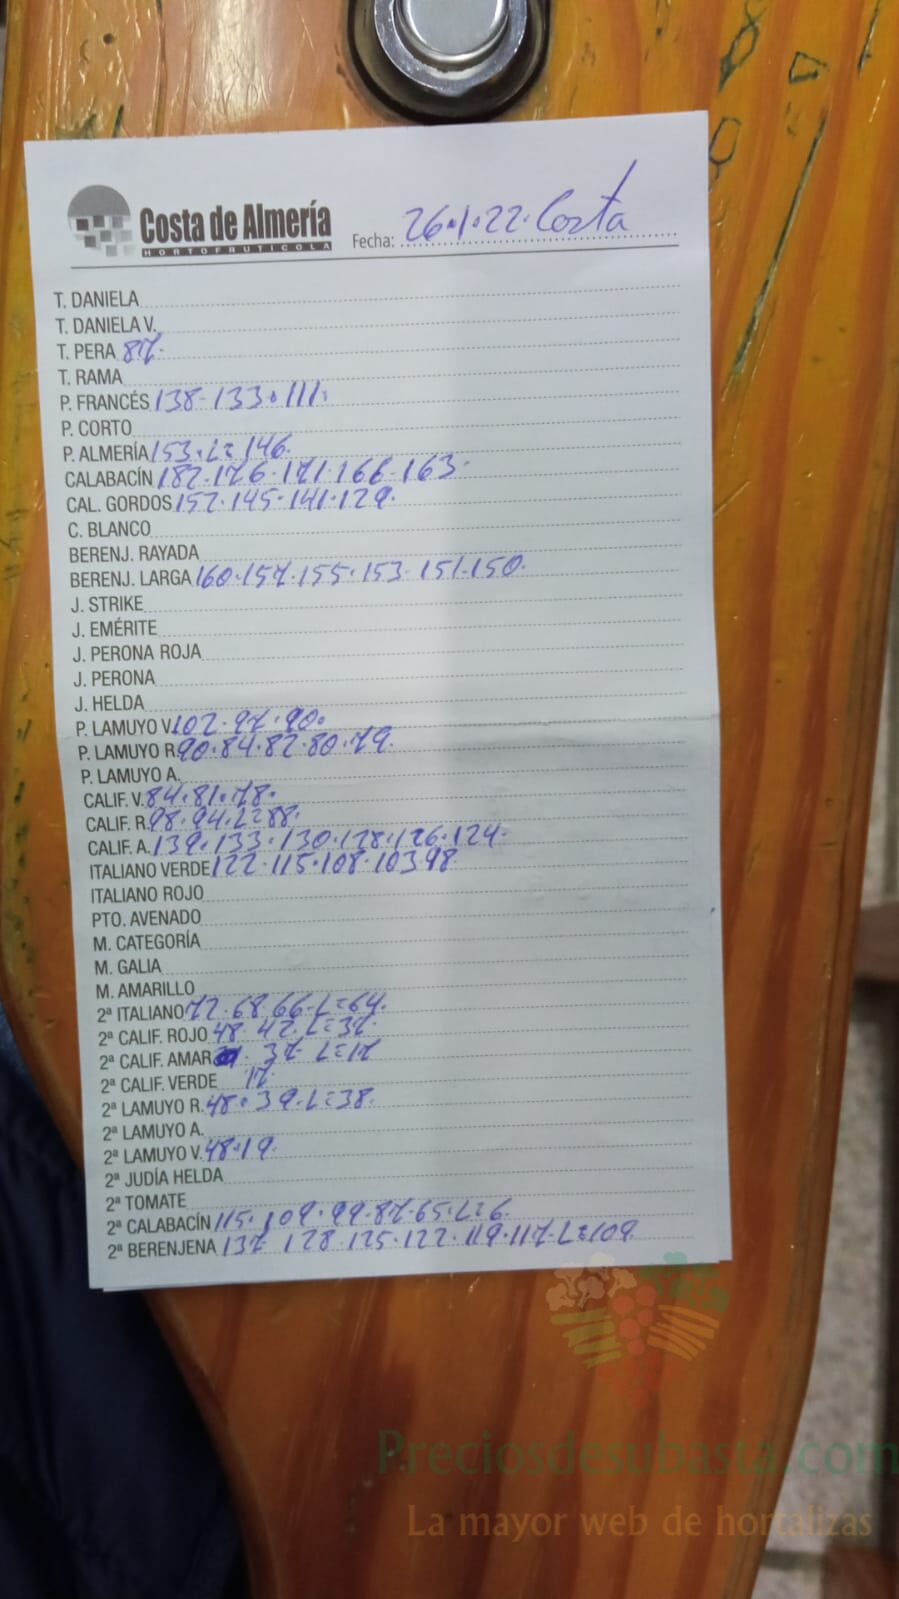 Costa de Almería
HORTOFRUTICOLA
Fecha: 26.1.22. Costa
T. DANIELA
T. DANIELA V.
T. PERA 87.
T. RAMA
P. FRANCÉS 138-133.111.
P. CORTO
P. ALMERÍA 153.L=146.
CALABACÍN 182.176.171.166-163.
CAL. GORDOS 152.145.141.129.
C. BLANCO
BERENJ. RAYADA
BERENJ. LARGA 160.157.155.153-151.150.
J. STRIKE
J. EMÉRITE
J. PERONA ROJA
J. PERONA
J. HELDA
P. LAMUYO V. 102.97.90.
P. LAMUYO R. 90.84.82.80.79.
P. LAMUYO A.
CALIF. V. 84.81.78.
CALIF. R. 98.94.L=88.
CALIF. A. 139.133.130.128.126.124.
ITALIANO VERDE 122.115.108.103 98.
ITALIANO ROJO
PTO. AVENADO
M. CATEGORÍA
M. GALIA
M. AMARILLO
2ª ITALIANO 72.68.66-L=64.
2ª CALIF. ROJO 48.42.L=37.
2ª CALIF. AMAR 37- L=17
2ª CALIF. VERDE 17.
2ª LAMUYO R. 48.39.L=38.
2ª LAMUYO A.
2ª LAMUYO V. 48.19.
2ª JUDÍA HELDA
2ª TOMATE
2ª CALABACÍN 115.109.99.87.65.L=6.
2ª BERENJENA 137 128.125.122.119.117.L=109.
Preciosdesubasta.com
La mayor web de hortalizas